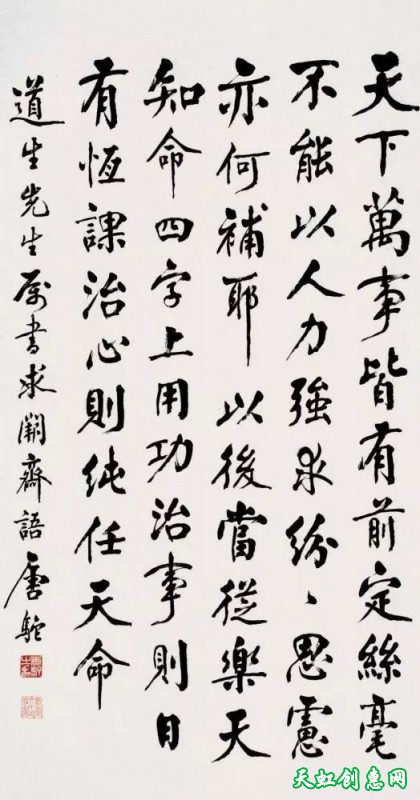 天下萬事皆有前定絲毫
不能以人力強求紛紛思慮
亦何補耶以後當從樂天
知命四字上用功治事則日
有恆課治心則純任天命
道生先生属書求闕齋語 唐駝
天虹创意网